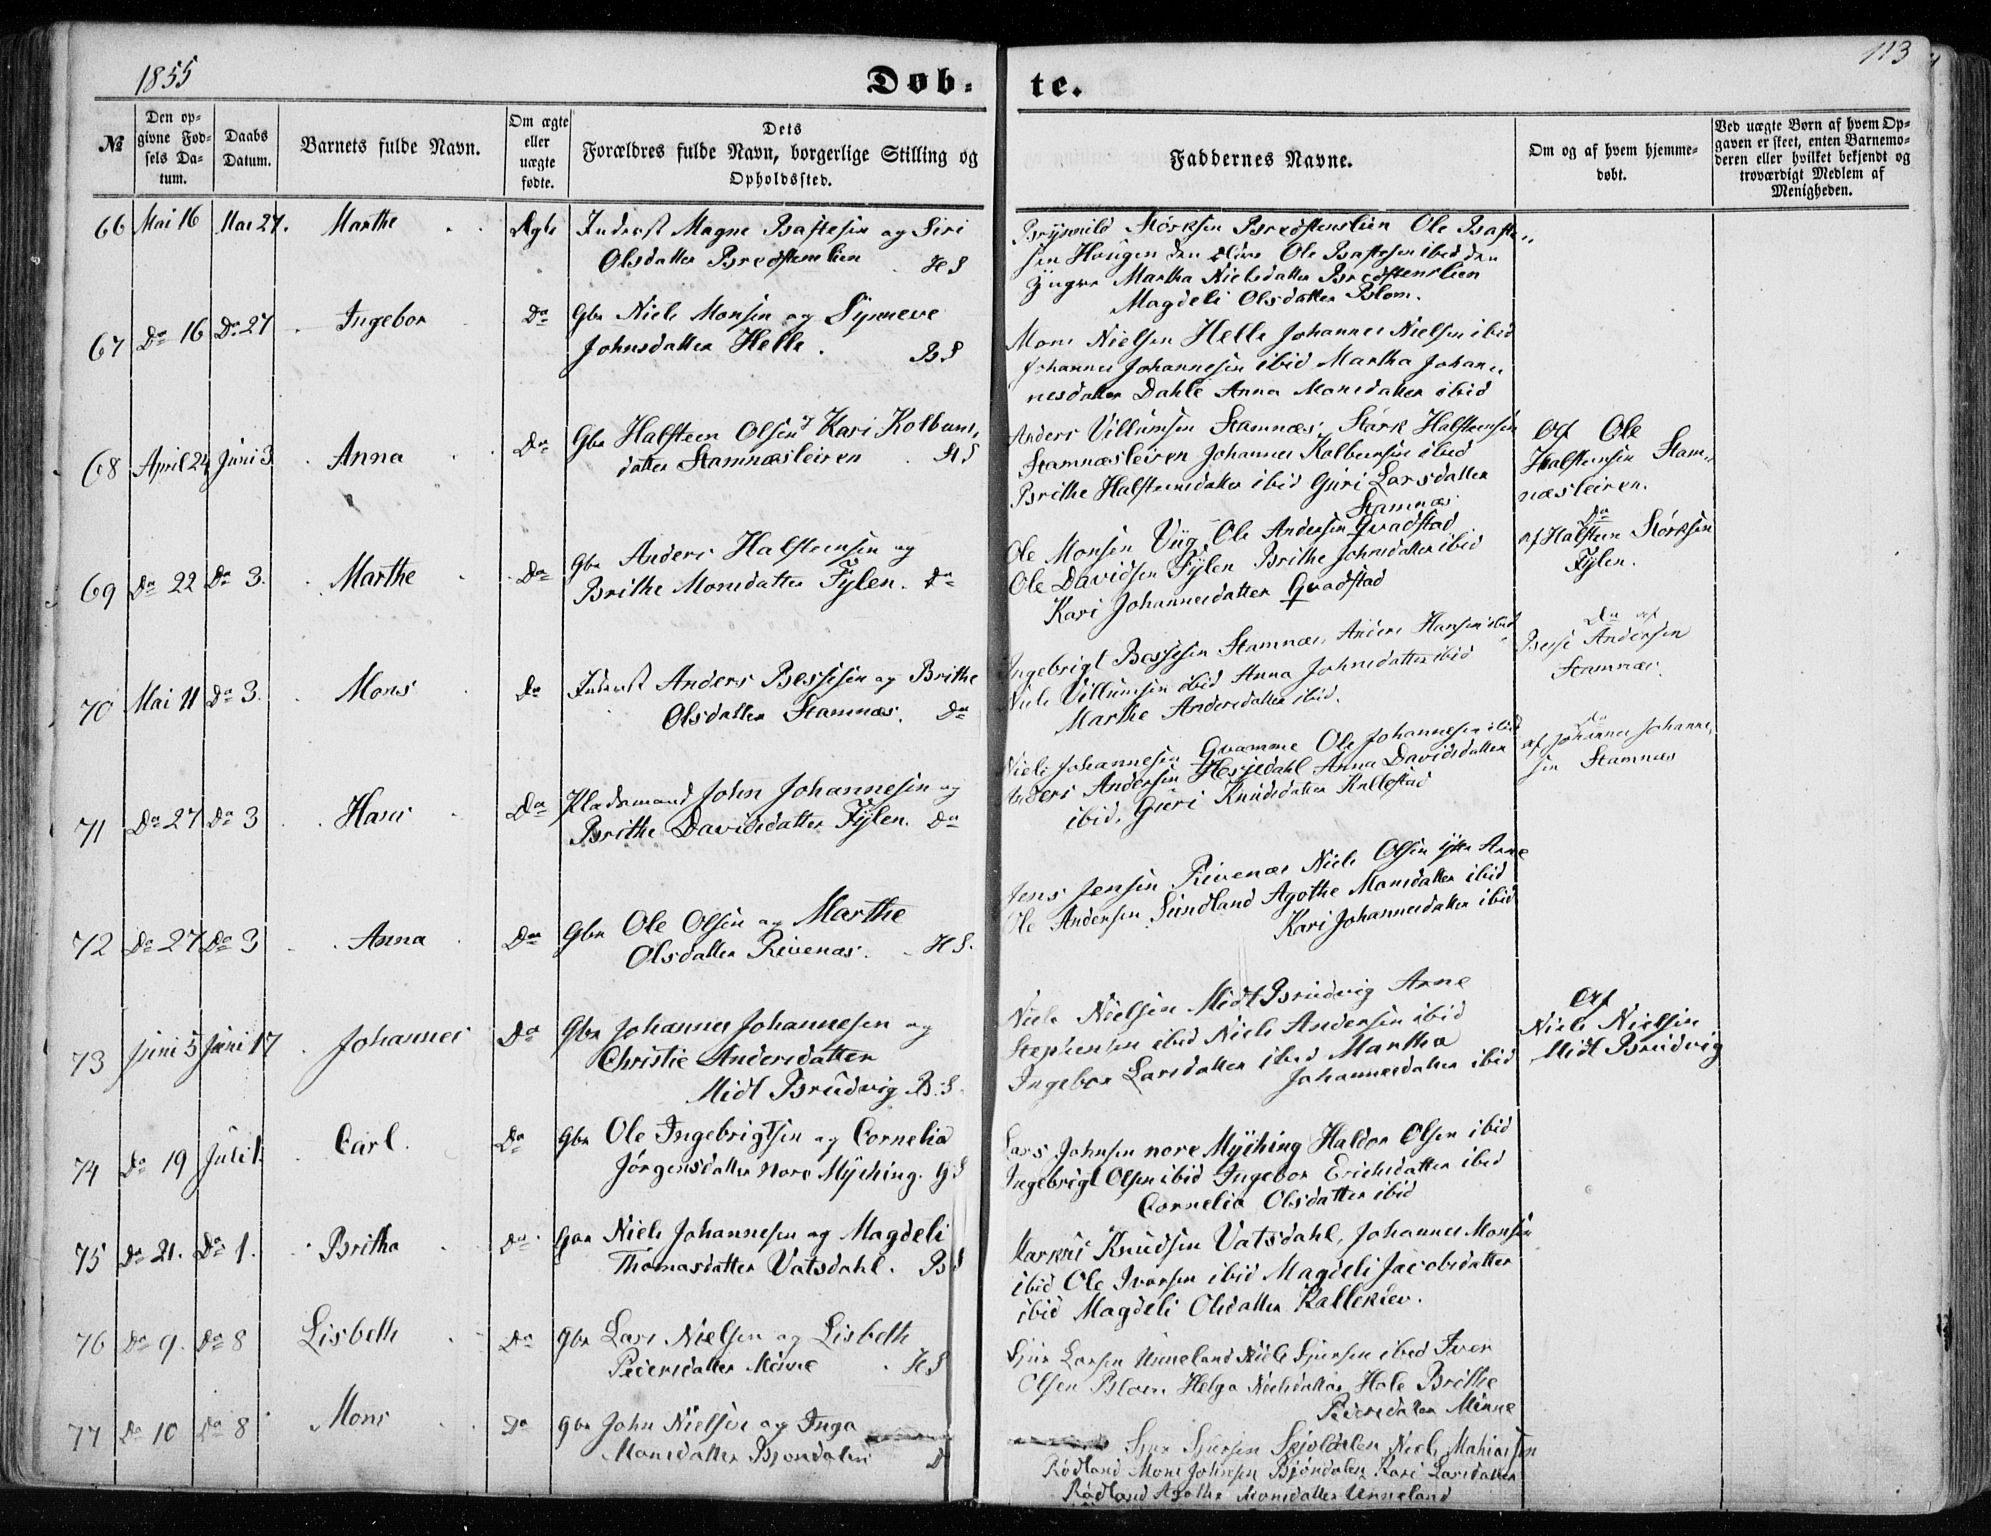 1855
113
Døb-
te.
№
Den op-
givne Fød-
sels Da-
tum.
Daabs
Datum.
Barnets fulde Navn.
Om ægte
eller
uægte
fødte.
Dets
Forældres fulde Navn, borgerlige Stilling og
Opholdssted.
Faddernes Navne.
Om og af hvem hjemme-
døbt.
Ved uægte Børn af hvem Op-
gaven er skeet, enten Barnemo-
deren eller hvilket bekjendt og
troværdigt Medlem af
Menigheden.
66 Mai 16 Mai 27. Marthe Ægte Inderst Magne Baftesen og Siri
Olsdatter Bredstenslien HS
Brynnild Størksen Bredstenslien Ole Bafte„
sen Hougen den eldre Ole Baftesen ibid den
yngre Martha Nielsdatter Bredstenslien
Magdeli Olsdatter Blom.
67 Do 16 Do 27 Ingebor Do Gbr Niels Monsen og Synneve
Johnsdatter Helle. BS
Mons Nielsen Helle Johannes Nielsen ibid
Johannes Johannesen ibid Martha Johan„
nesdatter Dahle Anna Monsdatter ibid
68 April 24 Juni 3 Anna Do Gbr Halsteen Olsen og Kari Kolbens„
datter Stamnæsleiren StS
Anders Villumsen Stamnæs, Størk Halsteensen
Stamnæsleiren Johannes Kolbensen ibid
Brithe Halsteensdatter ibid Guri Larsdatter
Stamnæs
Af Ole
Halsteensen Stam„
næsleiren.
69 Do 22 Do 3. Marthe Do Gbr Anders Halsteensen og
Brithe Monsdatter Fylen. Do
Ole Monsen Viig Ole Andersen Qvadstad
Ole Davidsen Fylen Brithe Johnsdatter ibid
Kari Johannesdatter Qvadstad
Do
af Halsteen Størksen
Fylen.
70 Mai 11 Do 3. Mons Do Inderst Anders Bessesen og Brithe
Olsdatter Stamnæs. Do
Ingebrigt Bessesen Stamnæs, Anders Hansen ibid
Niels Villumsen ibid Anna Johnsdatter ibid
Marthe Andersdatter ibid.
Do af
Besse Andersen
Stamnæs.
71 Do 27 Do 3 Hans Do Pladsmand John Johannesen og
Brithe Davidsdatter Fylen. Do
Niels Johannesen Qvamme Ole Johannesen ibid
Anders Andersen Hesjedahl Anna Davidsdatter
ibid, Guri Knudsdatter Kallestad
Do
af Johannes Johanne„
sen Stamnæs
72 Do 27 Do 3 Anna Do Gbr Ole Olsen og Marthe
Olsdatter Rivenæs. HS.
Jens Jensen Rivenæs Niels Olsen ytre Arne
Ole Andersen Sundland Agothe Monsdatter ibid
Kari Johannesdatter ibid
73 Juni 5 Juni 17 Johannes Do Gbr Johannes Johannesen og
Christie Andersdatter
Midt Brudvig B.S.
Niels Nielsen Midt Brudvig Arne
Stephensen ibid Niels Andersen ibid
Ingebor Larsdatter ibid Martha
Johannesdatter ibid
Af
Niels Nielsen
Midt Brudvig
74 Do 19 Juli 1. Carl. Do Gbr Ole Ingebrigtsen og Cornelia
Jørgensdatter nore Myching. GS
Lars Johnsen nore Myching Haldor Olsen ibid
Ingebrigt Olsen ibid Ingebor Erichsdatter ibid
Cornelia Olsdatter ibid
75 Do 21. Do 1. Britha Do Gbr Niels Johannesen og Magdeli
Thomasdatter Vatsdahl. BS
Markus Knudsen Vatsdahl, Johannes Monsen
ibid Ole Iversen ibid Magdeli Jacobsdatter
ibid Magdeli Olsdatter Kalleklev.
76 Do 9. Do 8 Lisbeth Do Gbr Lars Nielsen og Lisbeth
Pedersdatter Minne HS
Sjur Larsen Unneland Niels Sjursen ibid Iver
Olsen Blom Helga Nielsdatter Hole Brithe
Pedersdatter Minne
77 Do 10 Do 8 Mons Do Gbr John Nielsen og Inga
Monsdatter Bjøndalen D
Sjur Sjursen Skjoldalen Niels Mathiassen
Rødland Mons Johnsen Bjøndalen Kari Larsdatter
Rødland Agothe Monsdatter Unneland